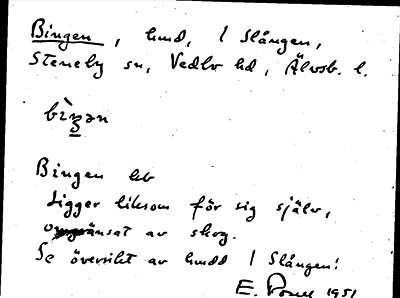 Bingen, hmd, l Slången,
Steneby sn, Vedbo hd, Älvsb. l.
bìŋən
Bingen hb
Ligger liksom för sig själv,
omgränsat av skog.
Se översikt av hmdd l Slången!
E. 1951